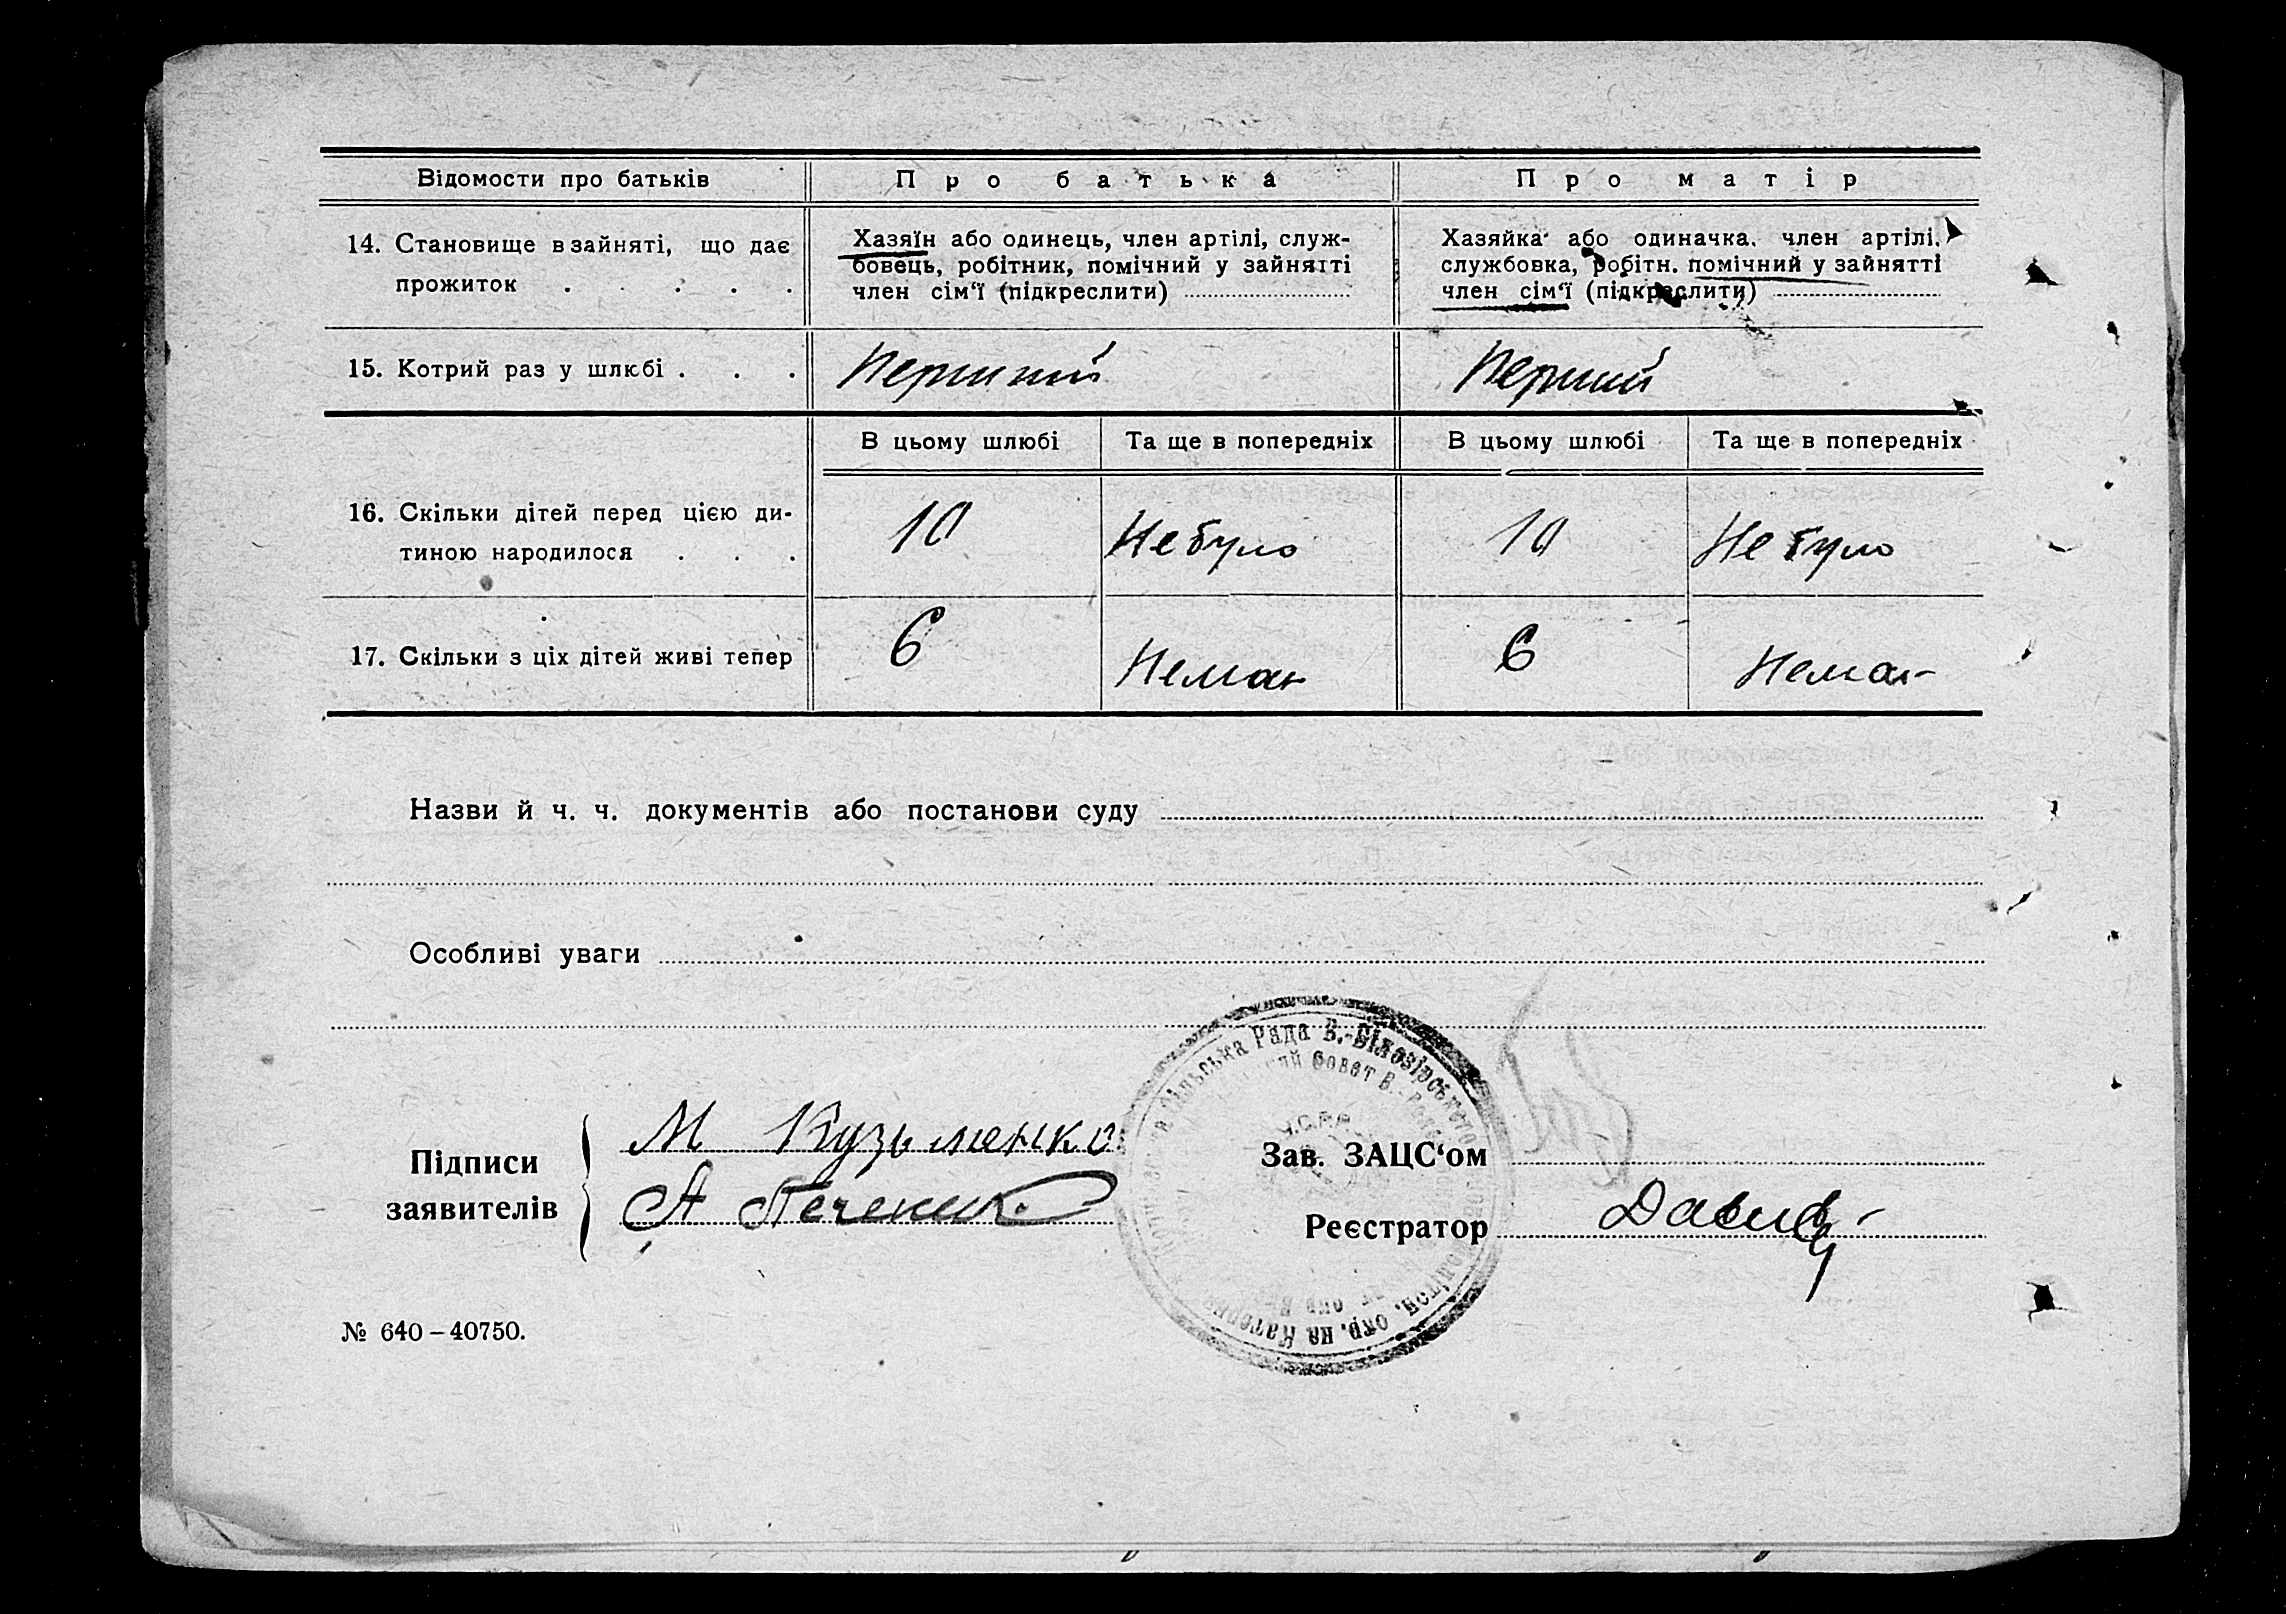 Відомости про батьків
Про батька
Про матір
14. Становище в зайняті, що дає
прожиток . . . . .
Хазяїн або одинець, член артілі, служ-
бовець, робітник, помічний у зайнятті
член сім‘ї (підкреслити)
Хазяйка або одиначка, член артілі,
службовка, робітн. помічний у зайнятті
член сім‘ї (підкреслити)
15. Котрий раз у шлюбі . . .
Перший
Перший
В цьому шлюбі
Та ще в попередніх
В цьому шлюбі
Та ще в попередніх
16. Скільки дітей перед цією ди-
тиною народилося . . .
10
Не було
10
Не було
17. Скільки з ціх дітей живі тепер
6
Немає
6
Немає
Назви й ч. ч. документів або постанови суду
Особливі уваги
Підписи
заявителів
М Кузьменко
А
Зав. ЗАЦС‘ом
Реєстратор
Сільська Рада В.-Білозірського
окр. на Катерин
№ 640–40750.